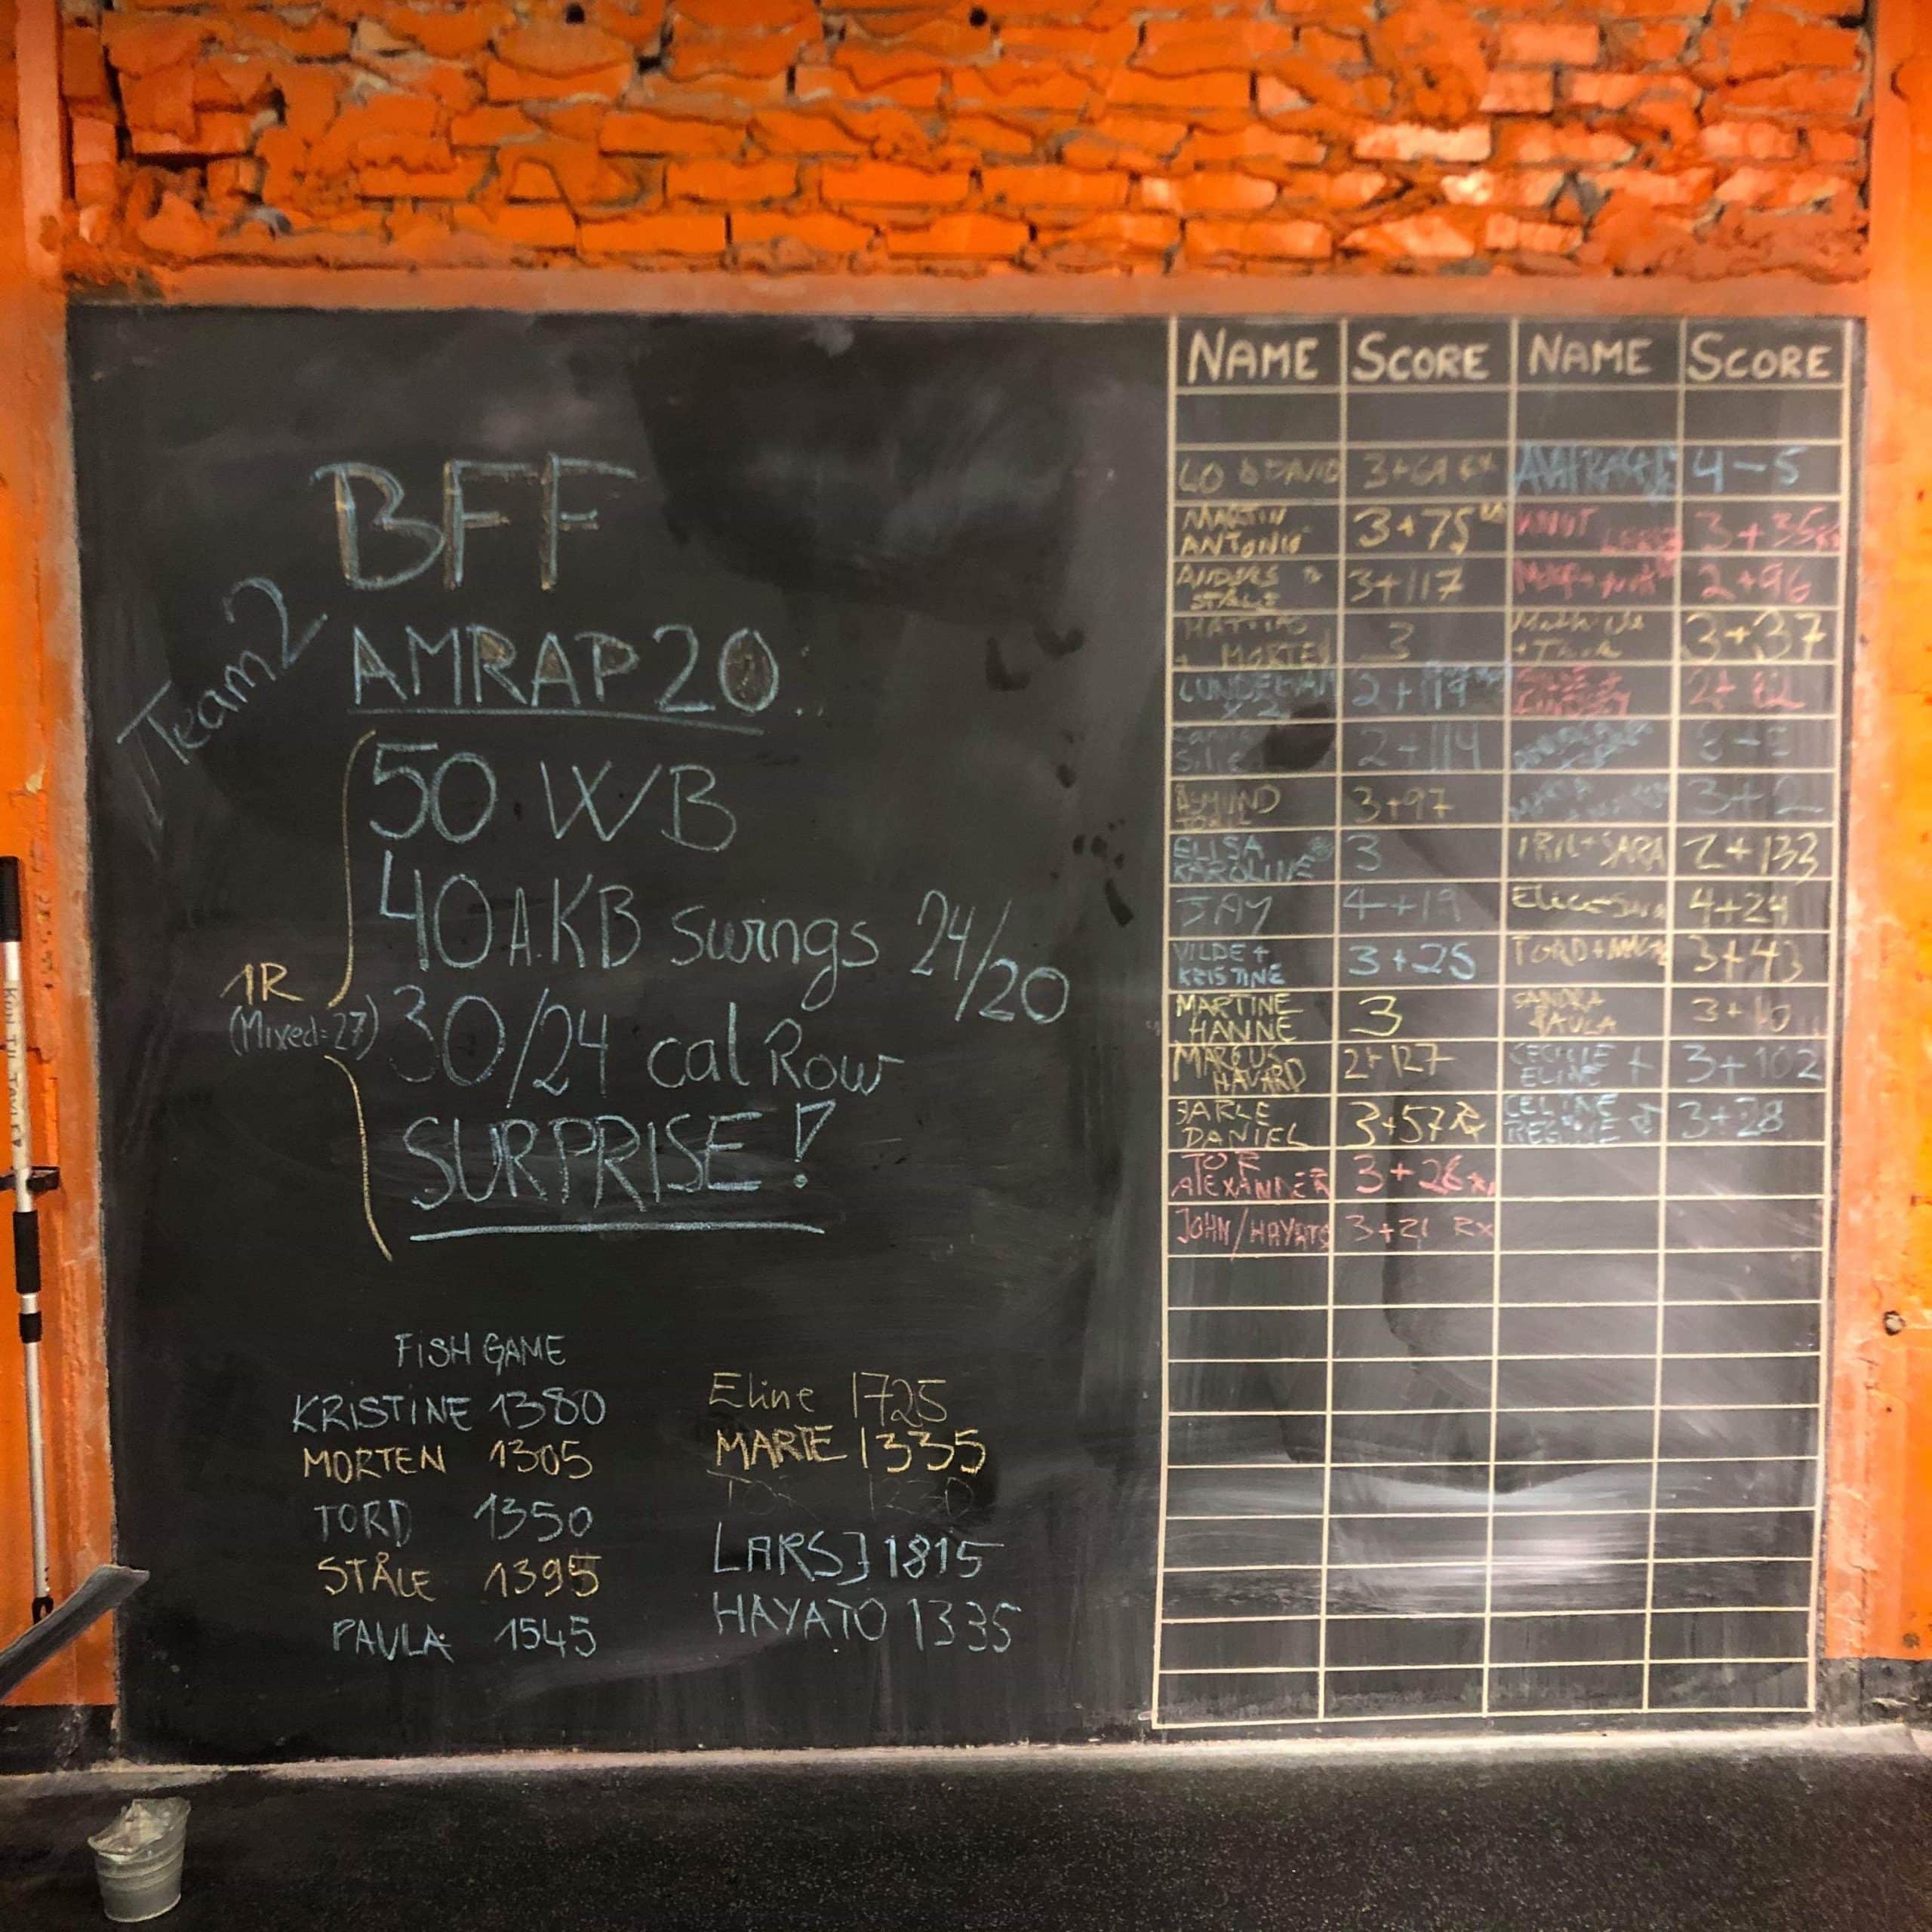 BFF
Team 2
AMRAP 20
50 WB
40 A.KB swings 24/20
1R
(Mixed=27) 30/24 cal Row
SURPRISE!
FISH GAME
KRISTINE 1380
MORTEN 1305
TORD 1350
STÅLE 1395
PAULA 1545
Eline 1725
MARTE 1335
TOR 1230
LARS J 1815
HAYATO 1335
NAME SCORE NAME SCORE
& DAVID 4-5
MARTIN
ANTONIO 3+75 KNUT 3+35
ANDERS &
STÅLE 3+117 2+96
MATTIAS
+ MORTEN 3 3+37
X 2
2+114
3+97 3+2
ELISA
KAROLINE 3 SARA 2+133
JAY 4+19 4+24
VILDE +
KRISTINE 3+25 TORD+ 3+43
MARTINE
HANNE 3 SANDRA
PAULA 3+10
MARCUS
HAVARD 2+127 CECILIE +
ELINE 3+102
JARLE
DANIEL 3+57 Rx CELINE
REGINE 3+28
TOR
ALEXANDER 3+26 Rx
JOHN/HAYATO 3+21 Rx